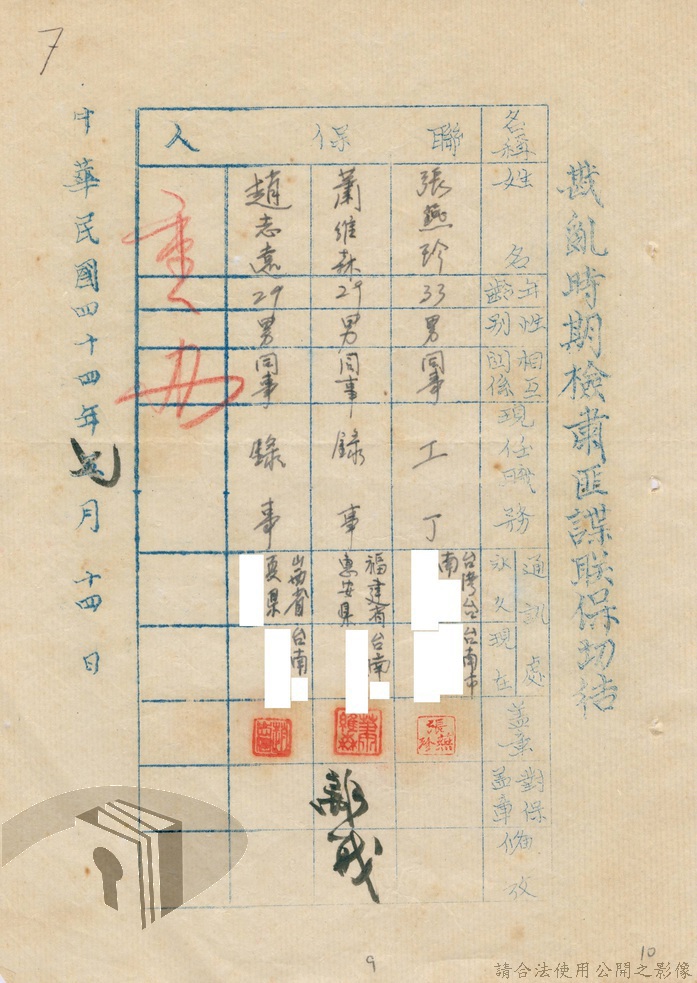 戡亂時期檢肅匪諜联保切结
名稱
聯保人
姓名
年齡
性別
相互関係
現任職務
通訊處
永久
現在
蓋章
對保蓋章
備攷
張燕珍
33
男
同事
工丁
台湾台南
台南市
張燕珍
蕭維森
29
男
同事
錄事
福建省惠安県
台南
蕭維森
離職
趙志熹
29
男
同事
錄事
山西省夏県
台南
重办
中華民國四十四年
月十四日
7
9
10
請合法使用公開之影像